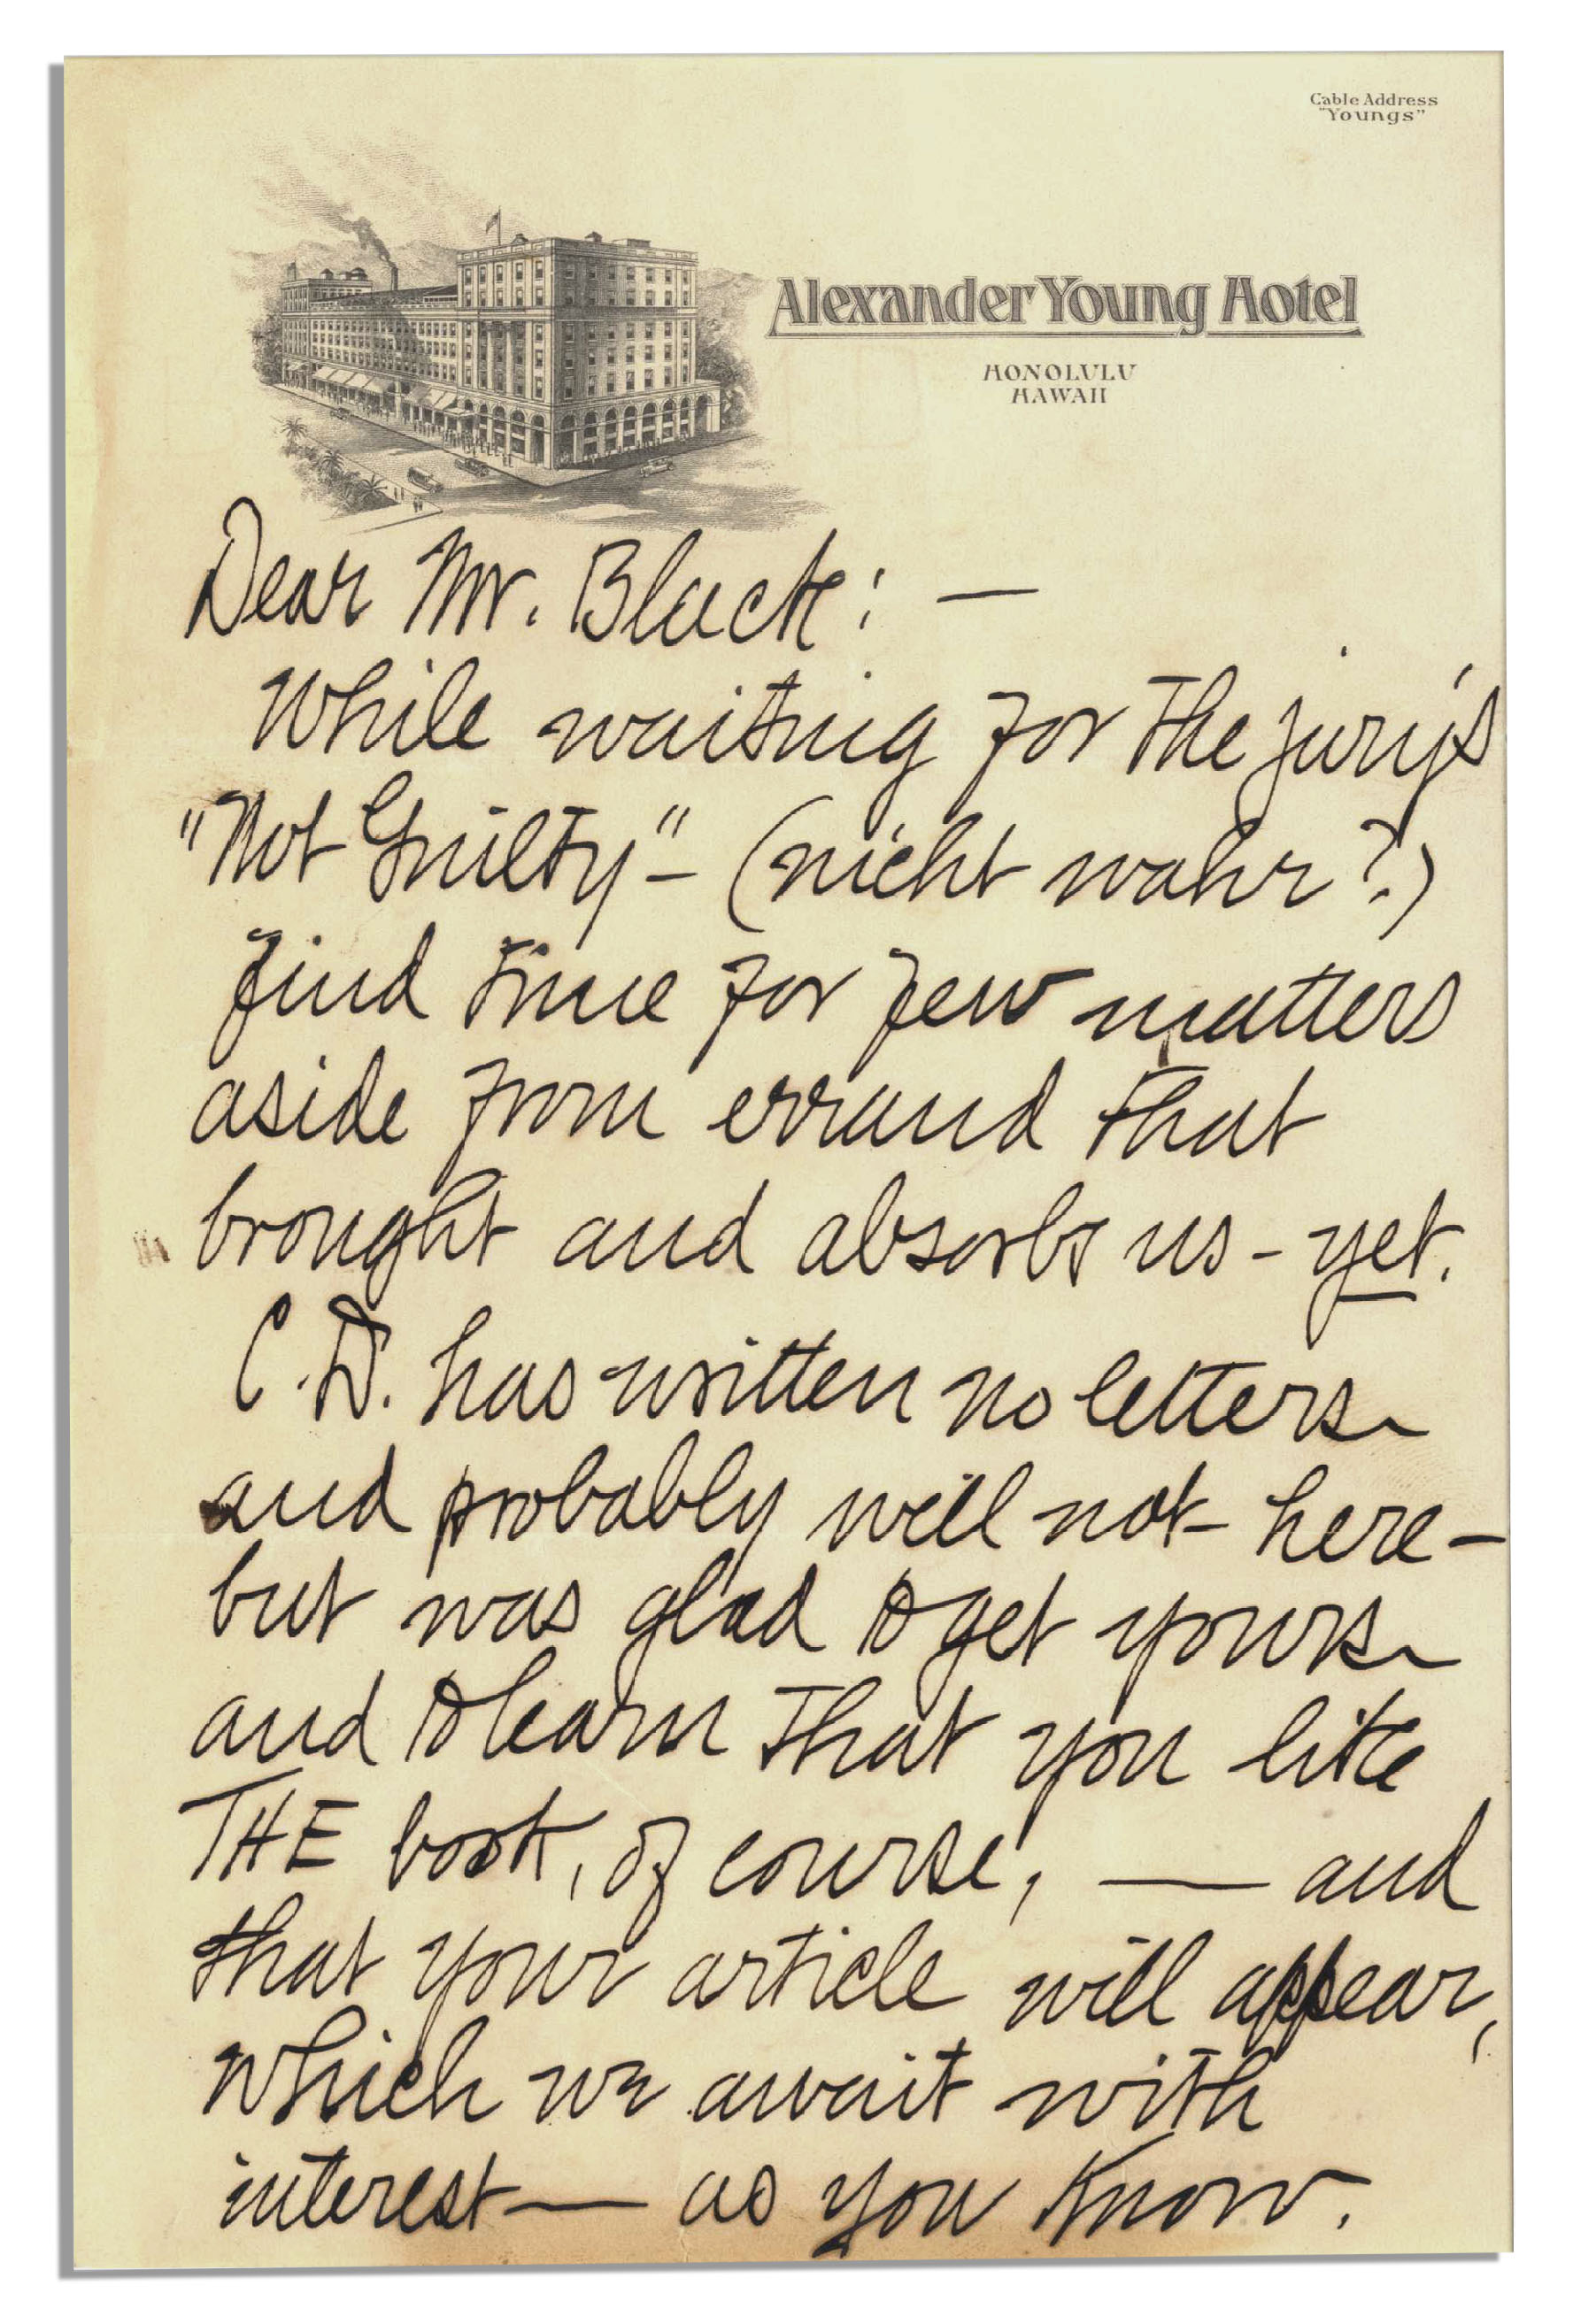 Cable Address
"Youngs"
Alexander Young Hotel
HONOLULU
HAWAII
Dear Mr. Black: —
While waiting for the jury's
"Not Guilty" — (nicht wahr?)
find time for few matters
aside from errand that
brought and absorbs us - yet.
C.D. has written no letters
and probably will not here —
but was glad to get yours
and to learn that you like
THE book, of course, — and
that your article will appear,
which we await with
interest — as you know.